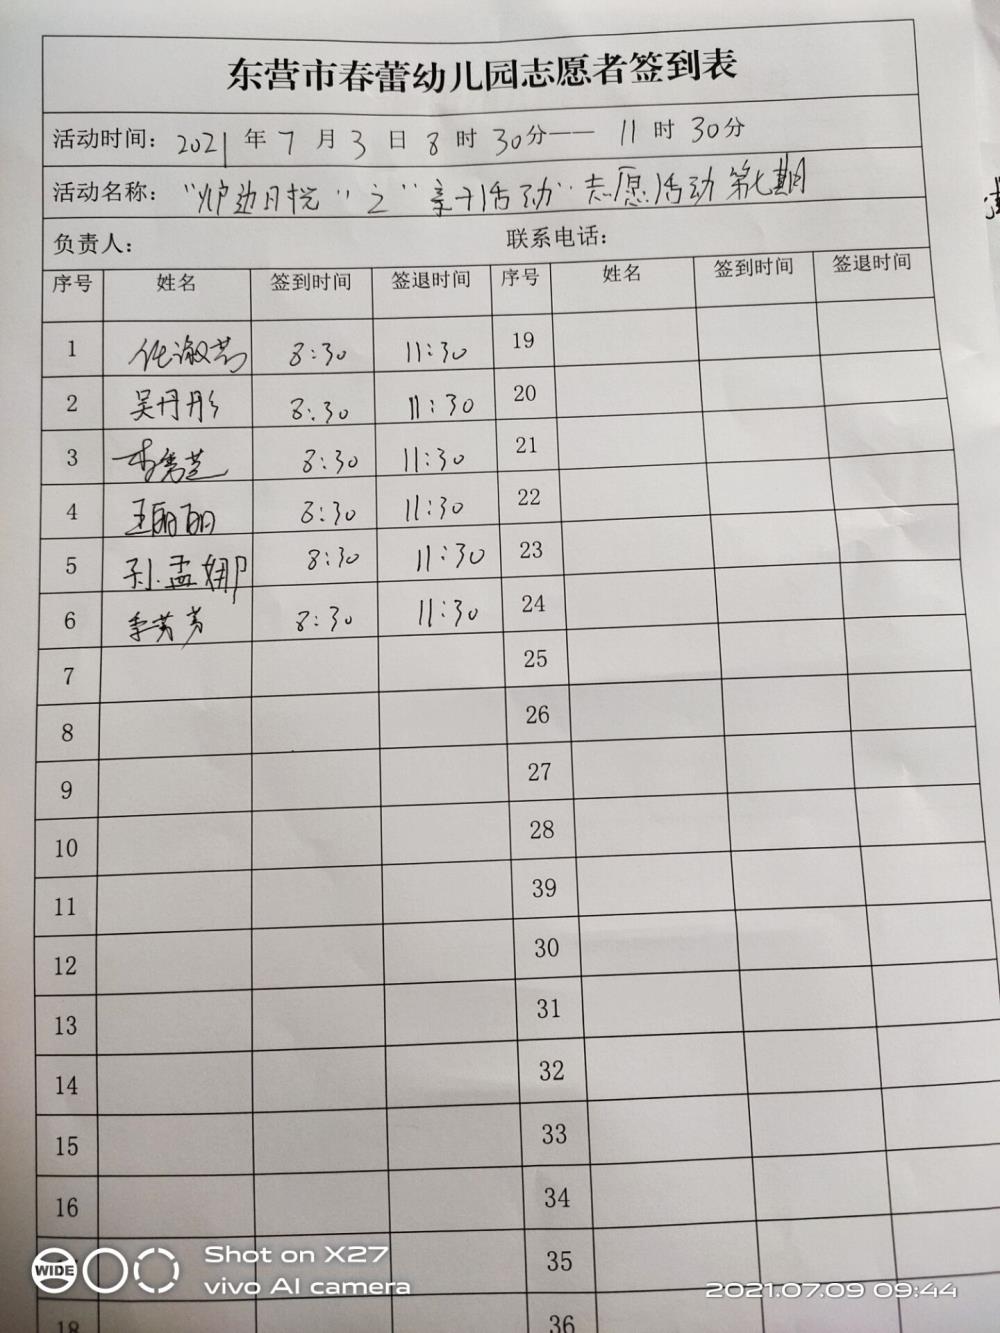 东营市春蕾幼儿园志愿者签到表
活动时间：2021年7月3日8时30分——11时30分
活动名称："炉边月悦"之"亲子活动"志愿活动第七期
负责人： 联系电话：
序号 姓名 签到时间 签退时间 序号 姓名 签到时间 签退时间
1 任淑芳 8:30 11:30 19
2 吴丹彤 8:30 11:30 20
3 李秀芝 8:30 11:30 21
4 王丽丽 8:30 11:30 22
5 孙孟娜 8:30 11:30 23
6 李芳芳 8:30 11:30 24
7 25
8 26
9 27
10 28
11 39
12 30
13 31
14 32
15 33
16 34
35
18 36
WIDE
Shot on X27
vivo AI camera
2021.07.09 09:44